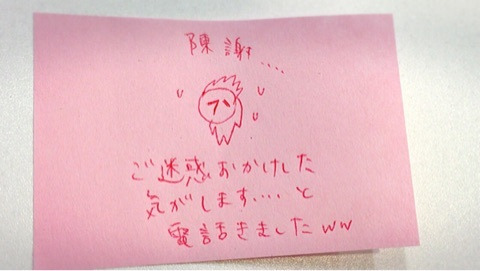 陳謝....
ご迷惑おかけした
気がします....と
電話きましたww